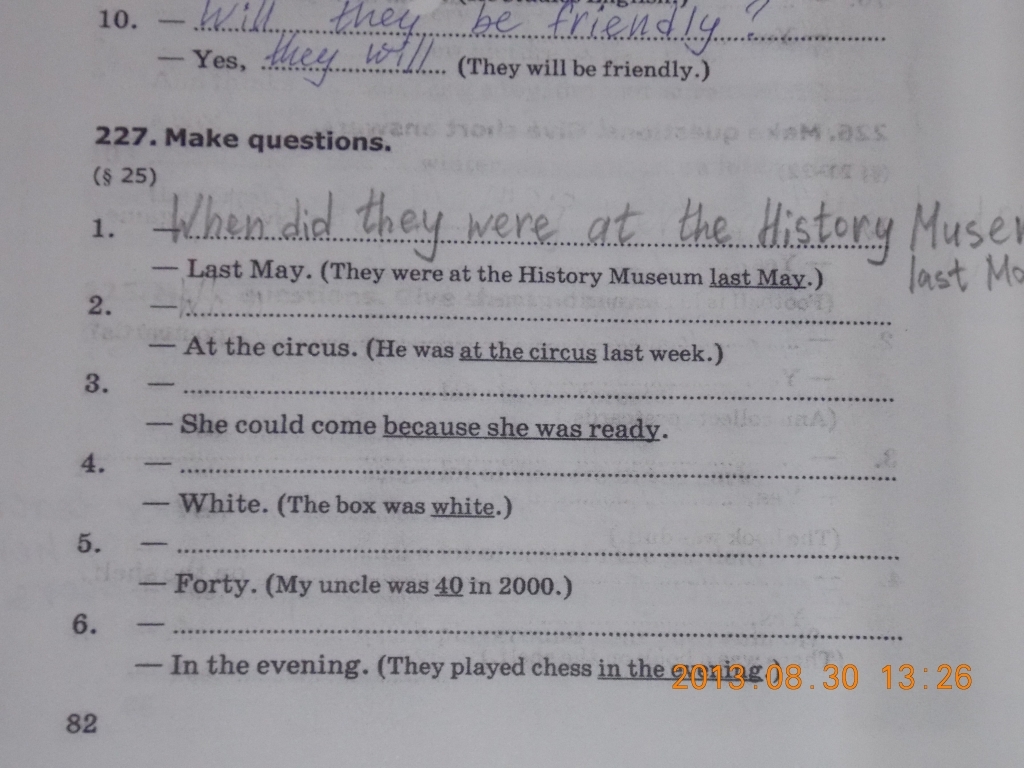 10. — Will they be friendly?
— Yes, they will (They will be friendly.)
227. Make questions.
(§ 25)
1. — When did they were at the History
— Last May. (They were at the History Museum last May.) last
2. —
— At the circus. (He was at the circus last week.)
3. —
— She could come because she was ready.
4. —
— White. (The box was white.)
5. —
— Forty. (My uncle was 40 in 2000.)
6. —
— In the evening. (They played chess in the evening.)
2013.08.30 13:26
82